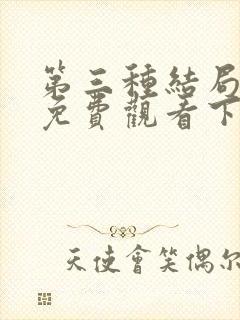 第三種結局
免費觀看下
天使會笑偶尔